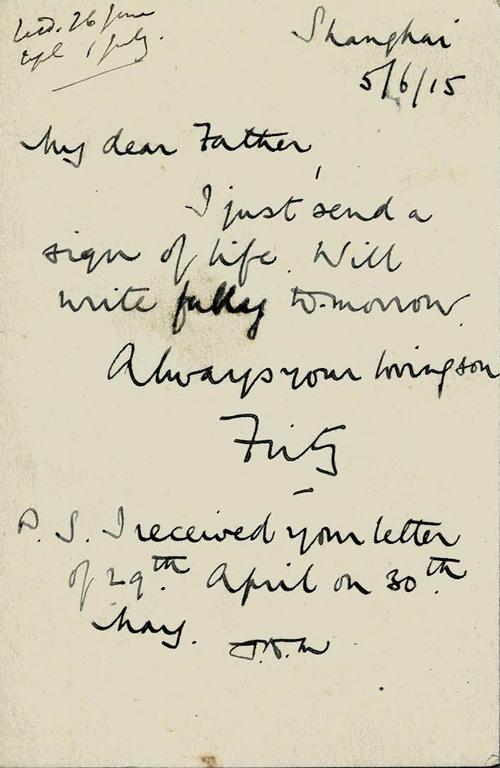 26 June
1 July.
Shanghai
5/6/15
My dear Father,
I just send a
sign of life. Will
write fully to-morrow.
Always your loving son
Fritz
P. S. I received your letter
of 29th. April on 30th.
May.